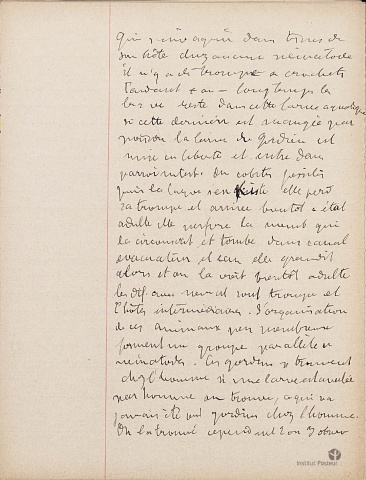 qui s'enveloppe dans tissus de
son hôte chez aucune nématode
il n'y a de trompe à crochets
Pendant + ou - longtemps la
larve reste dans cette larve aquatique
si cette dernière est mangée par
poisson la larve de Gordien est
mise en liberté et entre dans
paroi intest. du cobitis
puis la larve s'enkyste elle perd
sa trompe et arrivée bientôt à état
adulte elle perfore la memb qui
la circonscrit et tombe dans canal
évacuateur et eau elle grandit
alors et on la voit bientôt adulte
les diff avec nemat sont trompe et
l'hôtes intermédiaires. L'organisation
de ces animaux peu nombreux
forment un groupe parallèle à
nématodes. Ces gordiens se trouvent
chez l'homme si une larve est avalée
par homme on trouve, ce qui n'a
jamais été vu gordius chez l'homme.
On l'a trouvé cependant 2 ou 3
Institut Pasteur